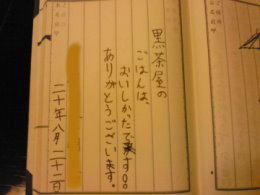 黒茶屋の
ごはんは、
おいしかったです。
ありがとうございます。
二十年八月二十二日